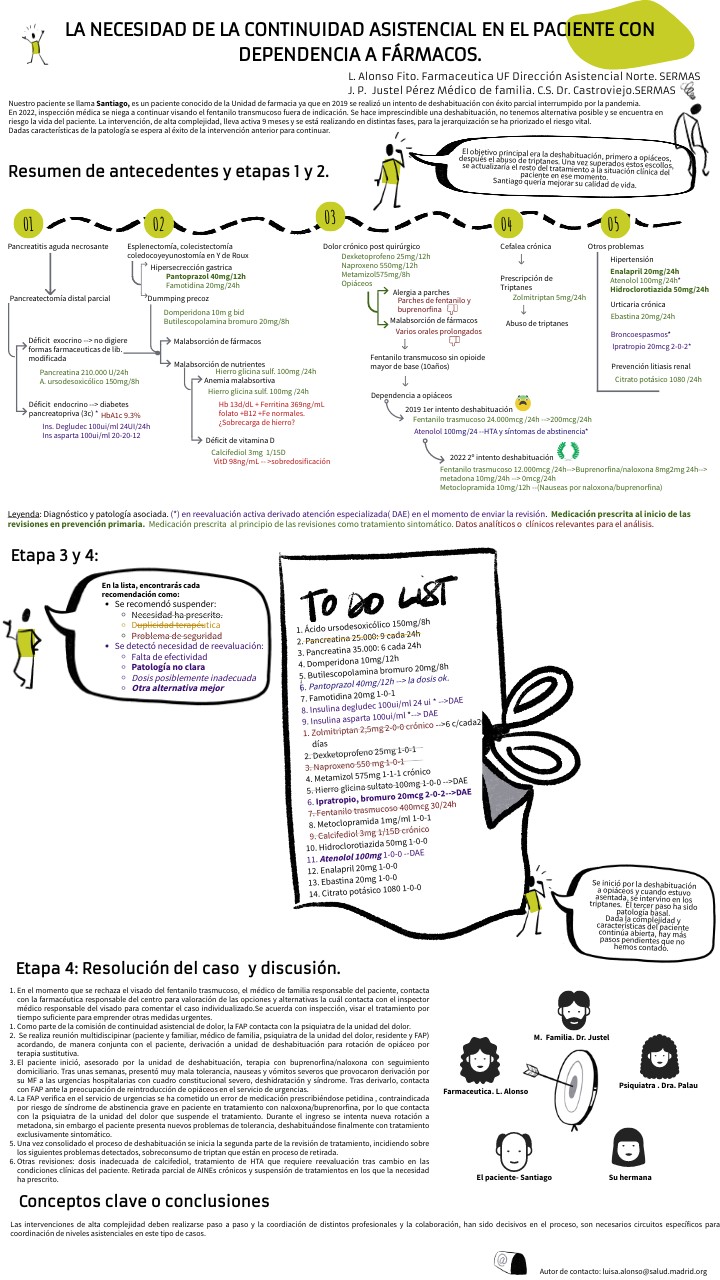 LA NECESIDAD DE LA CONTINUIDAD ASISTENCIAL EN EL PACIENTE CON
DEPENDENCIA A FÁRMACOS.
L. Alonso Fito. Farmaceutica UF Dirección Asistencial Norte. SERMAS
J. P. Justel Pérez Médico de familia. C.S. Dr. Castroviejo.SERMAS
Nuestro paciente se llama Santiago, es un paciente conocido de la Unidad de farmacia ya que en 2019 se realizó un intento de deshabituación con éxito parcial interrumpido por la pandemia.
En 2022, inspección médica se niega a continuar visando el fentanilo transmucoso fuera de indicación. Se hace imprescindible una deshabituación, no tenemos alternativa posible y se encuentra en
riesgo la vida del paciente. La intervención, de alta complejidad, lleva activa 9 meses y se está realizando en distintas fases, para la jerarquización se ha priorizado el riesgo vital.
Dadas características de la patología se espera al éxito de la intervención anterior para continuar.
El objetivo principal era la deshabituación, primero a opiáceos,
después el abuso de triptanes. Una vez superados estos escollos,
se actualizaría el resto del tratamiento a la situación clínica del
paciente en ese momento.
Santiago quería mejorar su calidad de vida.
Resumen de antecedentes y etapas 1 y 2.
01
02
03
04
05
Pancreatitis aguda necrosante
Pancreatectomía distal parcial
Déficit exocrino --> no digiere
formas farmaceuticas de lib.
modificada
Pancreatina 210.000 U/24h
A. ursodesoxicólico 150mg/8h
Déficit endocrino --> diabetes
pancreatopriva (3c) * HbA1c 9.3%
Ins. Degludec 100ui/ml 24UI/24h
Ins asparta 100ui/ml 20-20-12
Esplenectomía, colecistectomía
coledocoyeyunostomía en Y de Roux
Hipersecrección gastrica
Pantoprazol 40mg/12h
Famotidina 20mg/24h
Dummping precoz
Domperidona 10m g bid
Butilescopolamina bromuro 20mg/8h
Malabsorción de fármacos
Malabsorción de nutrientes
Hierro glicina sulf. 100mg /24h
Anemia malabsortiva
Hierro glicina sulf. 100mg /24h
Hb 13d/dL + Ferritina 369ng/mL
folato +B12 +Fe normales.
¿Sobrecarga de hierro?
Déficit de vitamina D
Calcifediol 3mg 1/15D
VitD 98ng/mL -- >sobredosificación
Dolor crónico post quirúrgico
Dexketoprofeno 25mg/12h
Naproxeno 550mg/12h
Metamizol575mg/8h
Opiáceos
Alergia a parches
Parches de fentanilo y
buprenorfina
Malabsorción de fármacos
Varios orales prolongados
Fentanilo transmucoso sin opioide
mayor de base (10años)
Dependencia a opiáceos
2019 1er intento deshabituación
Fentanilo trasmucoso 24.000mcg /24h -->200mcg/24h
Atenolol 100mg/24 --HTA y síntomas de abstinencia*
2022 2º intento deshabituación
Fentanilo trasmucoso 12.000mcg /24h-->Buprenorfina/naloxona 8mg2mg 24h-->
metadona 10mg/24h --> 0mcg/24h
Metoclopramida 10mg/12h --(Nauseas por naloxona/buprenorfina)
Cefalea crónica
Prescripción de
Triptanes
Zolmitriptan 5mg/24h
Abuso de triptanes
Otros problemas
Hipertensión
Enalapril 20mg/24h
Atenolol 100mg/24h*
Hidroclorotiazida 50mg/24h
Urticaria crónica
Ebastina 20mg/24h
Broncoespasmos*
Ipratropio 20mg 2-0-2*
Prevención litiasis renal
Citrato potásico 1080 /24h
Leyenda: Diagnóstico y patología asociada. (*) en reevaluación activa derivado atención especializada( DAE) en el momento de enviar la revisión. Medicación prescrita al inicio de las
revisiones en prevención primaria. Medicación prescrita al principio de las revisiones como tratamiento sintomático. Datos analíticos o clínicos relevantes para el análisis.
Etapa 3 y 4:
En la lista, encontrarás cada
recomendación como:
Se recomendó suspender:
Necesidad ha prescrito.
Duplicidad terapéutica
Problema de seguridad
Se detectó necesidad de reevaluación:
Falta de efectividad
Patología no clara
Dosis posiblemente inadecuada
Otra alternativa mejor
TO DO LIST
1. Ácido ursodesoxicólico 150mg/8h
2. Pancreatina 25.000: 9 cada 24h
3. Pancreatina 35.000: 6 cada 24h
4. Domperidona 10mg/12h
5. Butilescopolamina bromuro 20mg/8h
6. Pantoprazol 40mg/12h --> la dosis ok.
7. Famotidina 20mg 1-0-1
8. Insulina degludec 100ui/ml 24 ui * -->DAE
9. Insulina asparta 100ui/ml *--> DAE
1. Zolmitriptan 2,5mg 2-0-0 crónico -->6 c/cada2
días
2. Dexketoprofeno 25mg 1-0-1
3. Naproxeno 550 mg 1-0-1
4. Metamizol 575mg 1-1-1 crónico
5. Hierro glicina sulfato 100mg 1-0-0 -->DAE
6. Ipratropio, bromuro 20mcg 2-0-2-->DAE
7. Fentanilo trasmucoso 400mcg 30/24h
8. Metoclopramida 1mg/ml 1-0-1
9. Calcifediol 3mg 1/15D crónico
10. Hidroclorotiazida 50mg 1-0-0
11. Atenolol 100mg 1-0-0 --DAE
12. Enalapil 20mg 1-0-0
13. Ebastina 20mg 1-0-0
14. Citrato potásico 1080 1-0-0
Se inició por la deshabituación
a opiáceos y cuando estuvo
asentada, se intervino en los
triptanes. El tercer paso ha sido
patología basal.
Dada la complejidad y
características del paciente
continúa abierta, hay más
pasos pendientes que no
hemos contado.
Etapa 4: Resolución del caso y discusión.
1. En el momento que se rechaza el visado del fentanilo trasmucoso, el médico de familia responsable del paciente, contacta
con la farmacéutica responsable del centro para valoración de las opciones y alternativas la cuál contacta con el inspector
médico responsable del visado para comentar el caso individualizado.Se acuerda con inspección, visar el tratamiento por
tiempo suficiente para emprender otras medidas urgentes.
1. Como parte de la comisión de continuidad asistencial de dolor, la FAP contacta con el psiquiatra de la unidad del dolor.
2. Se realiza reunión multidiscipinar (paciente y familiar, médico de familia, psiquiatra de la unidad del dolor, residente y FAP)
acordando, de manera conjunta con el paciente, derivación a unidad de deshabituación para rotación de opiáceo por
terapia sustitutiva.
3. El paciente inició, asesorado por la unidad de deshabituación, terapia con buprenorfina/naloxona con seguimiento
domiciliario. Tras unas semanas, presentó muy mala tolerancia, nauseas y vómitos severos que provocaron derivación por
su MF a las urgencias hospitalarias con cuadro constitucional severo, deshidratación y síndrome. Tras derivarlo, contacto
con FAP ante la preocupación de reintroducción de opiáceos en el servicio de urgencias.
4. La FAP verifica en el servicio de urgencias se ha cometido un error de medicación prescribiéndose petidina , contraindicada
por riesgo de síndrome de abstinencia grave en paciente en tratamiento con naloxona/buprenorfina, por lo que contacta
con la psiquiatra de la unidad del dolor que suspende el tratamiento. Durante el ingreso se intenta nueva rotación a
metadona, sin embargo el paciente presenta nuevos problemas de tolerancia, deshabituándose finalmente con tratamiento
exclusivamente sintomático.
5. Una vez consolidado el proceso de deshabituación se inicia la segunda parte de la revisión de tratamiento, incidiendo sobre
los siguientes problemas detectados, sobreconsumo de triptan que están en proceso de retirada.
6. Otras revisiones: dosis inadecuada de calcifediol, tratamiento de HTA que requiere reevaluación tras cambio en las
condiciones clínicas del paciente. Retirada parcial de AINEs crónicos y suspensión de tratamientos en los que la necesidad
ha prescrito.
M. Familia. Dr. Justel
Farmaceutica. L. Alonso
Psiquiatra . Dra. Palau
El paciente- Santiago
Su hermana
Conceptos clave o conclusiones
Las intervenciones de alta complejidad deben realizarse paso a paso y la coordiación de distintos profesionales y la colaboración, han sido decisivos en el proceso, son necesarios circuitos específicos para
coordinación de niveles asistenciales en este tipo de casos.
@
Autor de contacto: luisa.alonso@salud.madrid.org